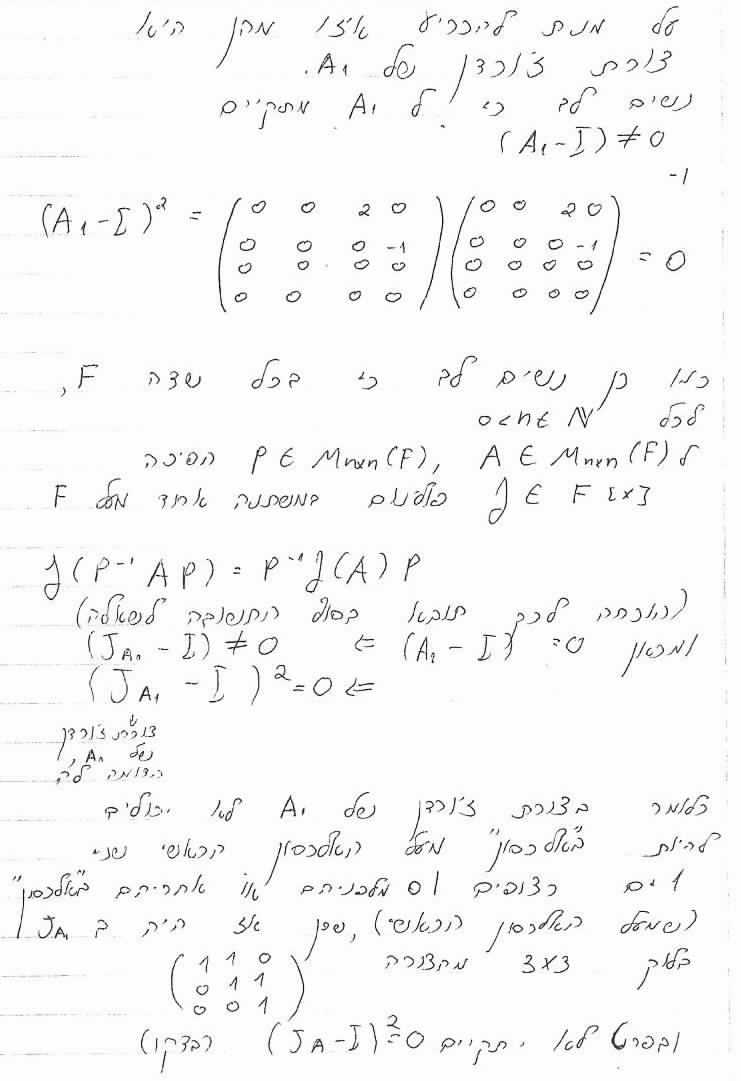 על מנת להכריע איזו מהן היא
צורת ז'ורדן של A₁.
נשים לב כי ל A₁ מתקיים
(A₁-I) ≠ 0
-1
(A₁-I)² = (0 0 2 0 / 0 0 0 -1 / 0 0 0 0 / 0 0 0 0) (0 0 2 0 / 0 0 0 -1 / 0 0 0 0 / 0 0 0 0) = 0
כמו כן נשים לב כי בכל שדה F,
לכל 0<n∈ℕ
ל A ∈ Mₙₓₙ(F), P ∈ Mₙₓₙ(F) הפיכה
f ∈ F[x] פולינום במשתנה אחד מעל F
f(P⁻¹AP) = P⁻¹f(A)P
(הוכחה לכך תובא בסוף התשובה לשאלה)
ומכאן (A₁-I) =0 ⇐ (J_A₁ - I) ≠ 0
(J_A₁ - I)² = 0 ⇐
צורת ז'ורדן
של A₁,
הדומה לה
כלומר בצורת ז'ורדן של A₁ לא יכולים
להיות ב"אלכסון" מעל האלכסון הראשי שני
1 ים רצופים 0| מלפניהם או אחריהם ב"אלכסון"
(שמעל האלכסון הראשי), שכן אז היה ב J_A₁
בלוק 3x3 מהצורה (1 1 0 / 0 1 1 / 0 0 1)
ובפרט לא יתקיים (J_A-I)²=0 (בדקו)